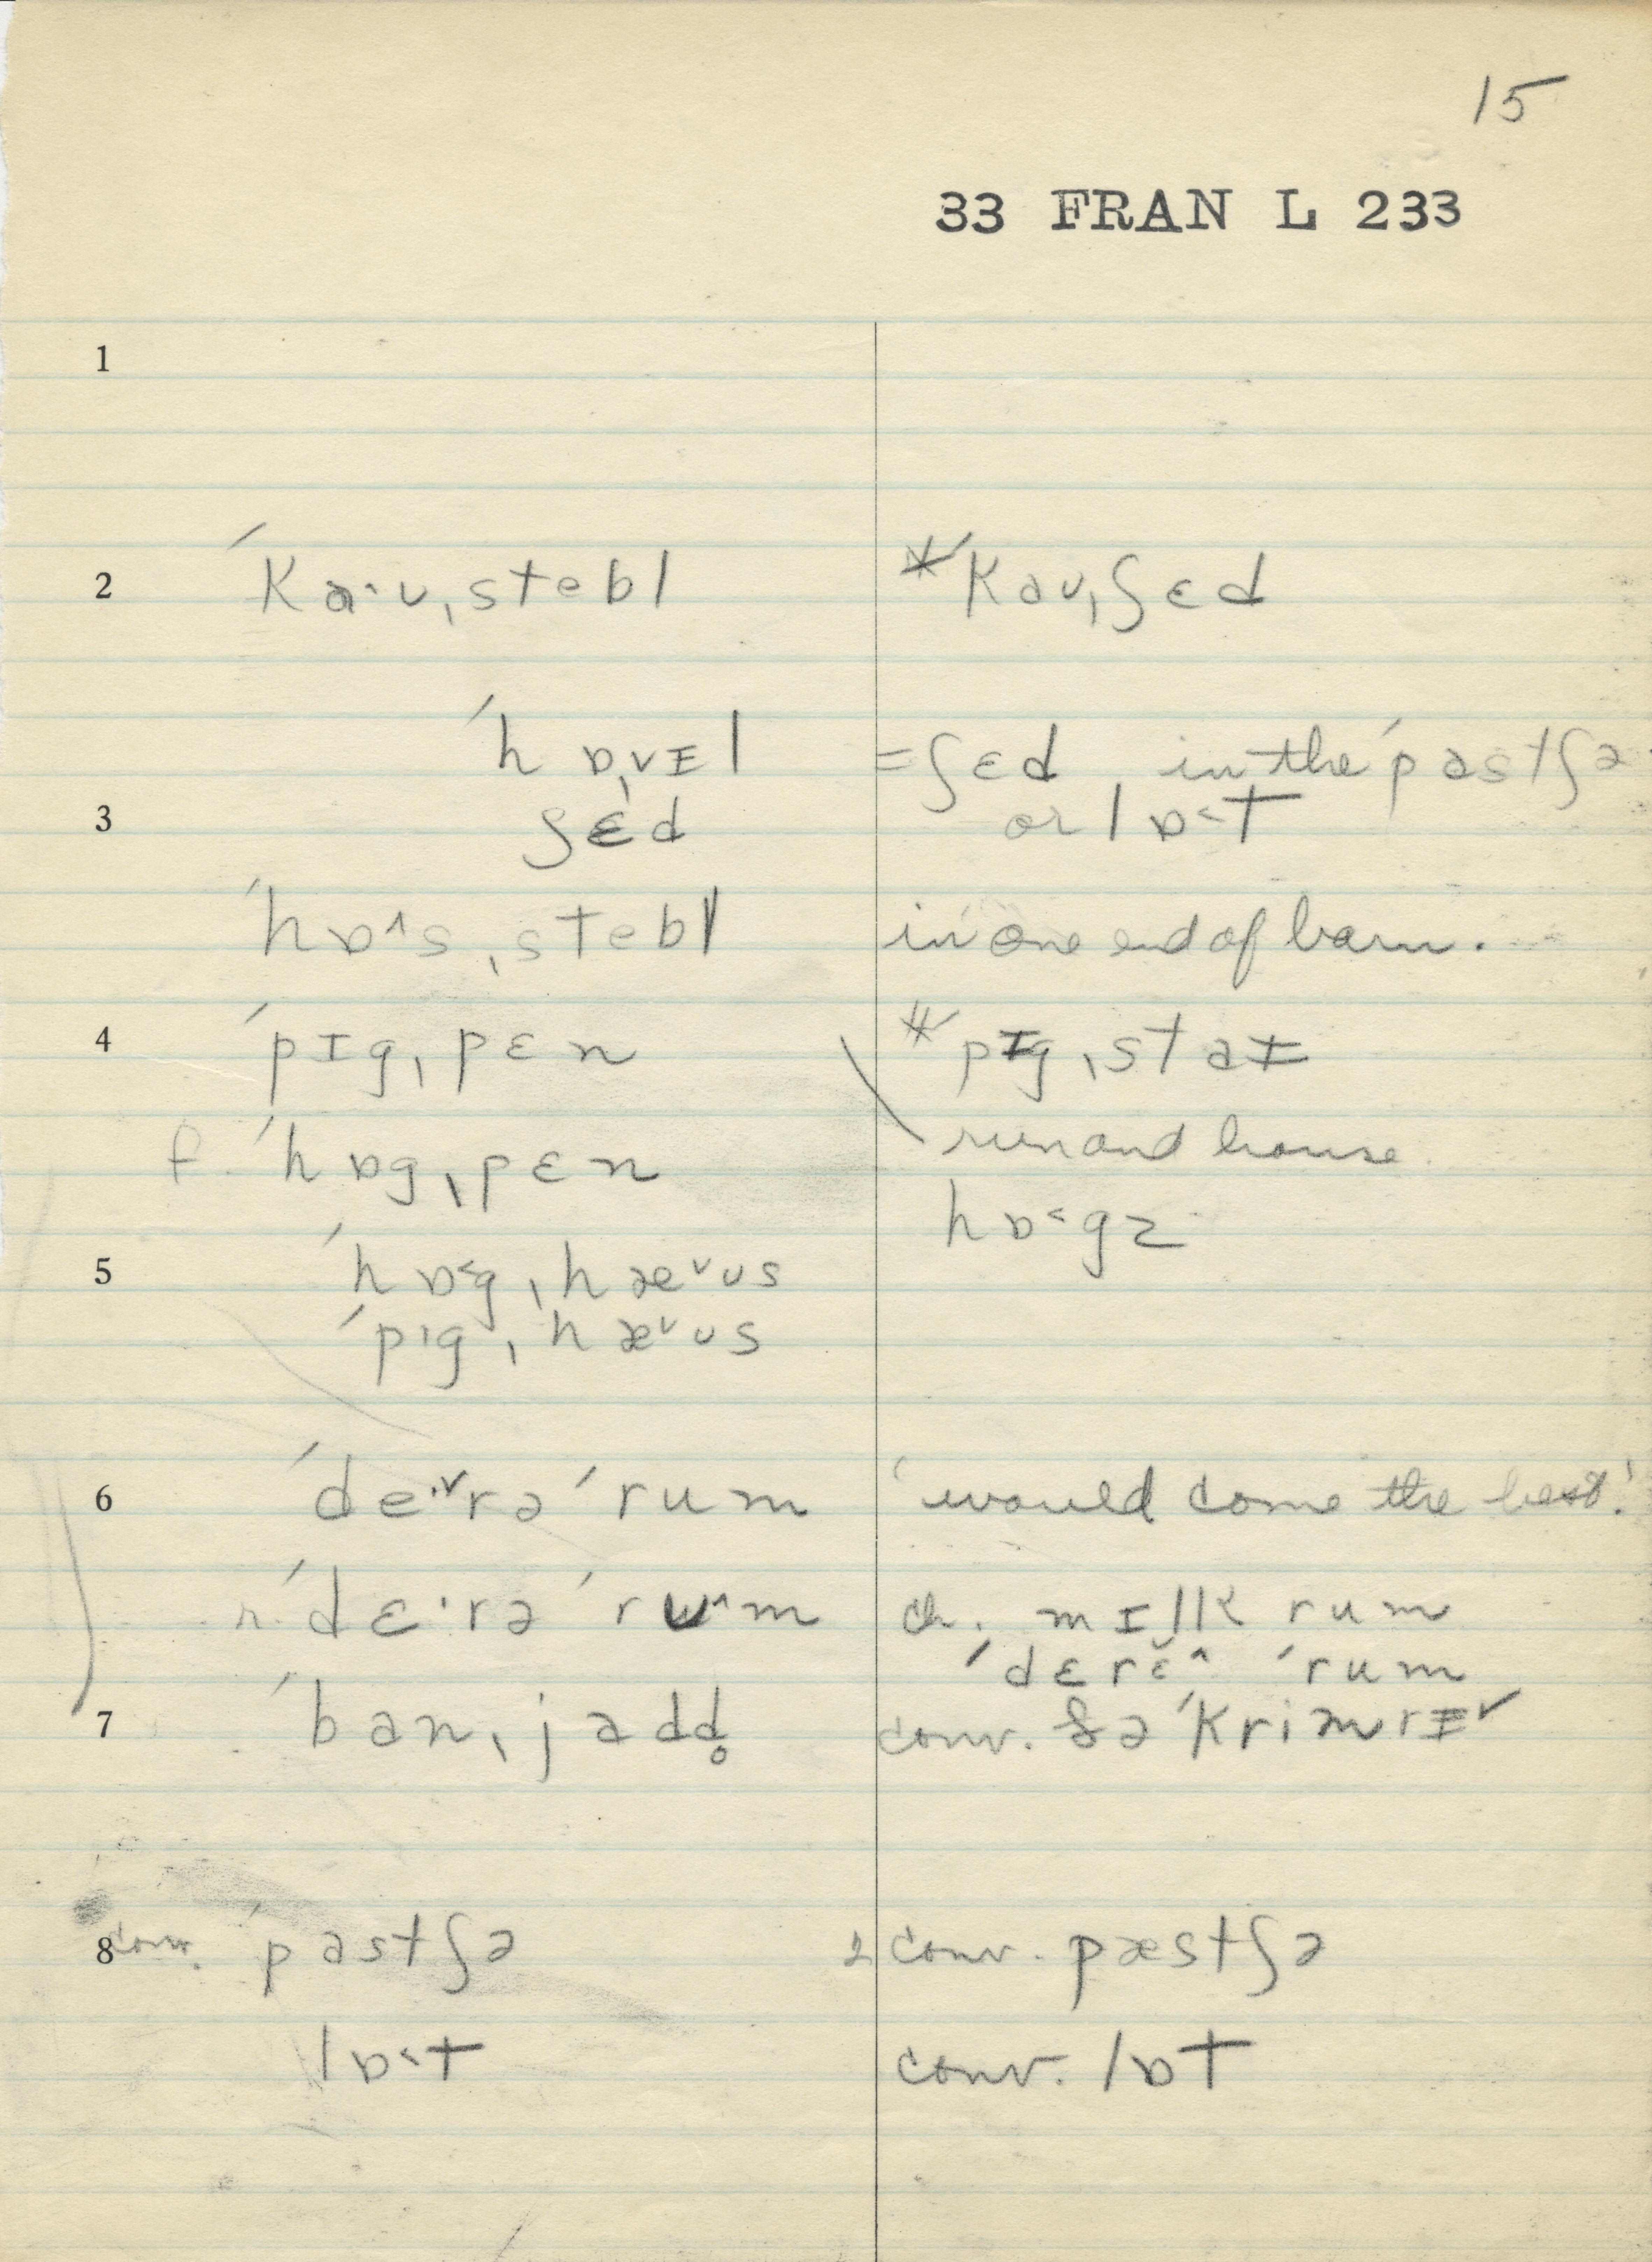 15
33 FRAN L 233
1
2 ˈkaˑʊˌstebl *ˈkaʊˌʃɛd
ˈhɒˌvɪl = ʃɛd, in the ˈpastʃə
3 ʃɛd or lɒ˂t
ˈhɒ^sˌstebl in one end of barn.
4 ˈpɪgˌpɛn *ˈpɪgˌstaɪ
run and house
f. ˈhɒgˌpɛn
hɒ˂gz
5 ˈhɒ˂gˌhæ˅ʊs
ˈpɪgˌhæ˅ʊs
6 ˈdeˑ˅rə ˈrum 'would come the best.'
r. ˈdɛˑrə ˈrʊ^m ch. mɪlk rum
ˈdɛrɛ̆^ ˈrum
7 ˈbanˌjadd̥ conv. ðə ˈkrimrɪ˅
8 conv. ˈpastʃə 2 conv. pæstʃə
lɒ˂t conv. lɒt